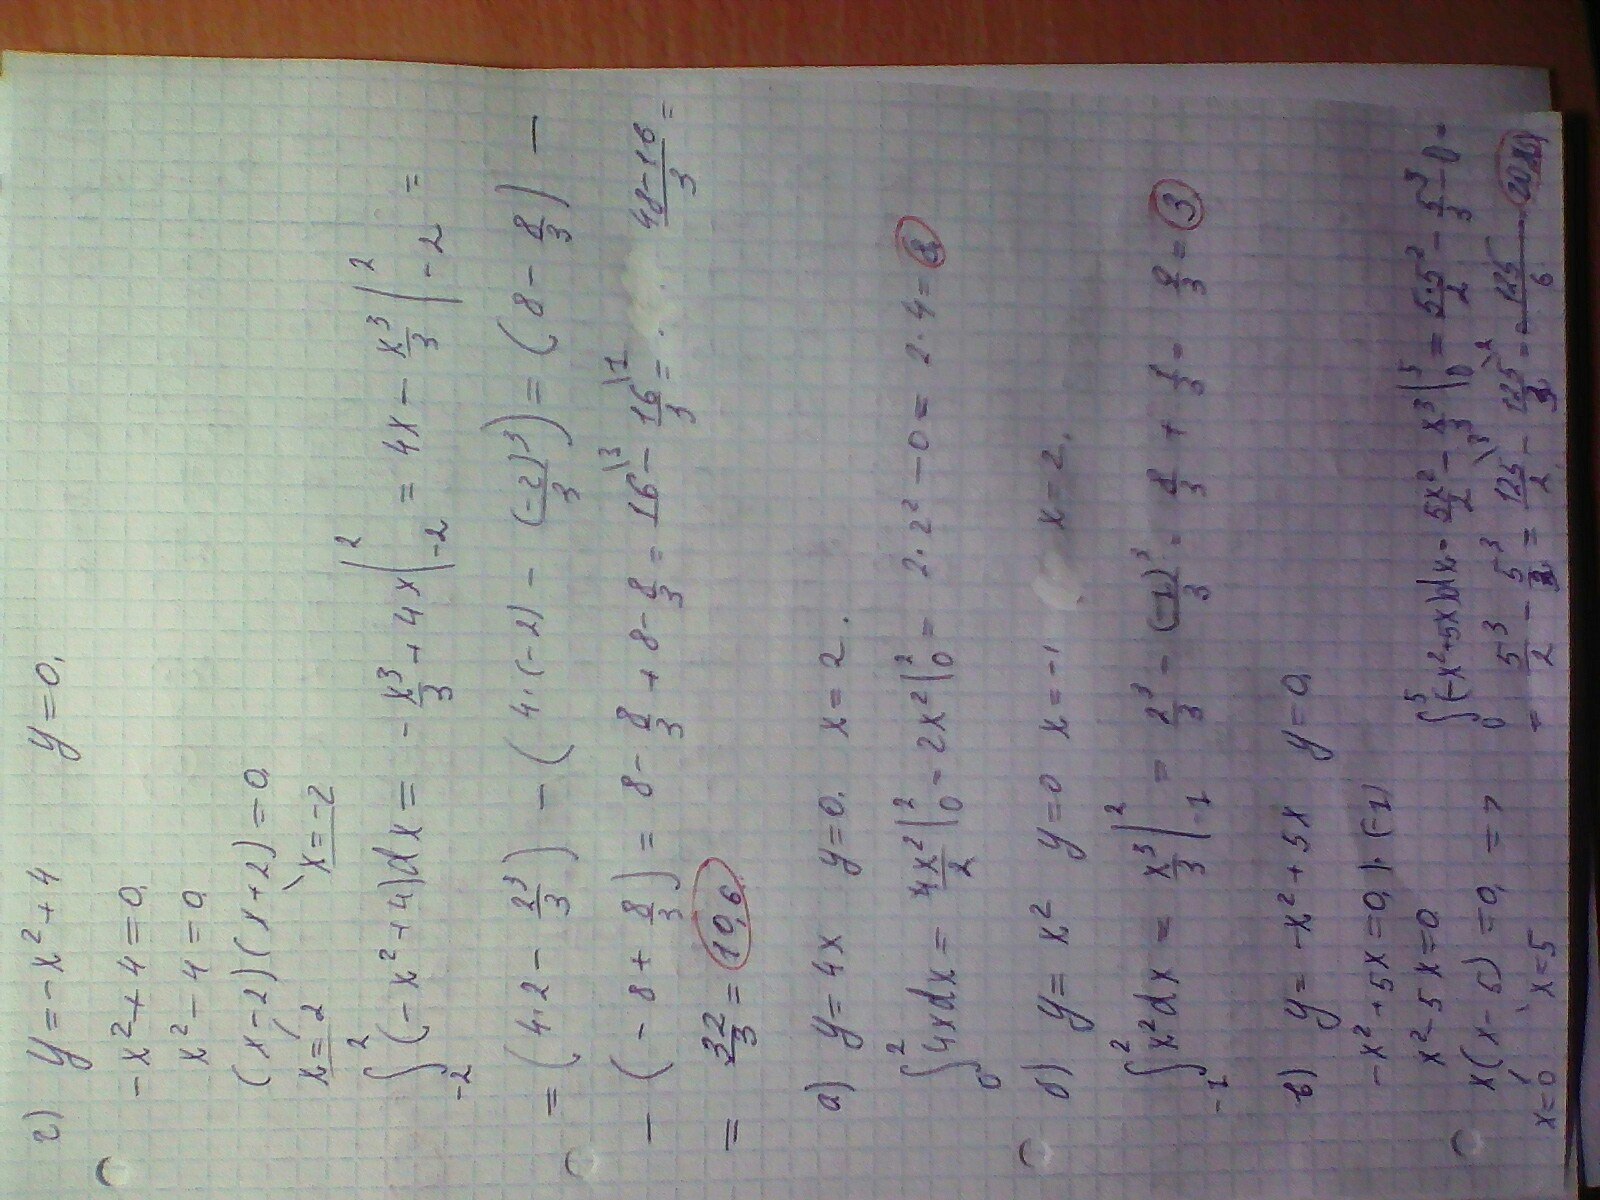 г) y = -x² + 4 y = 0.
-x² + 4 = 0.
x² - 4 = 0
(x-2)(x+2) = 0.
x = 2 x = -2
∫₋₂² (-x² + 4)dx = -x³/3 + 4x |₋₂² = 4x - x³/3 |₋₂² =
= (4·2 - 2³/3) - (4·(-2) - (-2)³/3) = (8 - 8/3) -
- (-8 + 8/3) = 8 - 8/3 + 8 - 8/3 = 16\3 - 16/3\1 = 48-16/3 =
= 32/3 = 10,6.
а) y = 4x y = 0. x = 2.
∫₀² 4xdx = 4x²/2 |₀² = 2x² |₀² = 2·2² - 0 = 2·4 = 8
б) y = x² y = 0 x = -1 x = 2.
∫₋₁² x²dx = x³/3 |₋₁² = 2³/3 - (-1)³/3 = 8/3 + 1/3 = 9/3 = 3
в) y = -x² + 5x y = 0.
-x² + 5x = 0 |·(-1)
x² - 5x = 0
x(x - 5) = 0, =>
x = 0 x = 5
∫₀⁵ (-x²+5x)dx = 5x²/2 - x³/3 |₀⁵ = 5·5²/2 - 5³/3 - 0 =
= 5³/2 - 5³/3 = 125/2\3 - 125/3\2 = 125/6